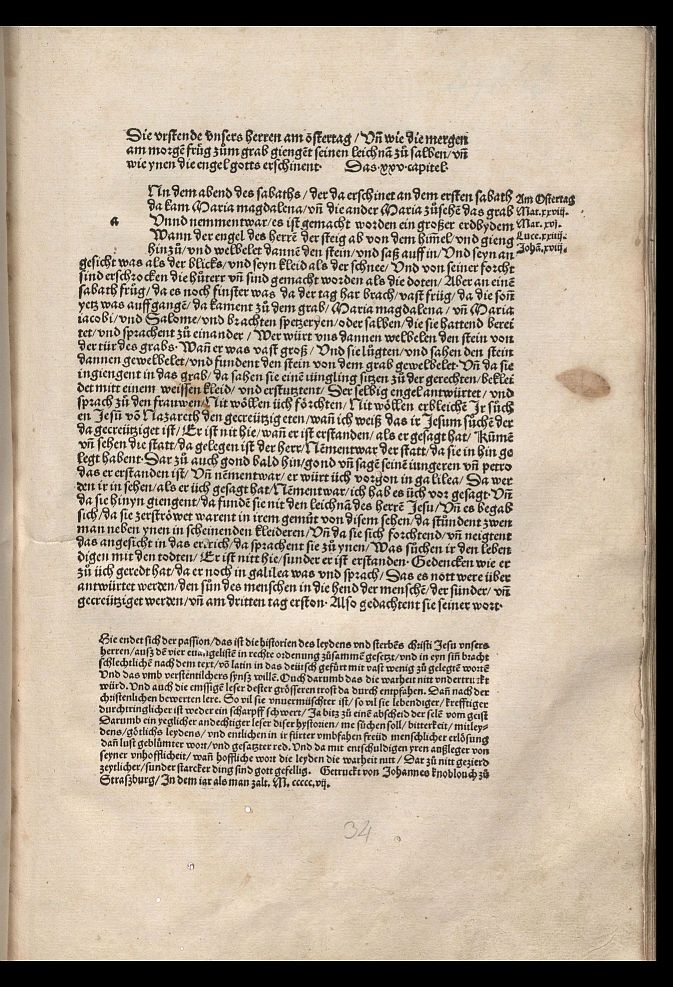 Die vrstende vnsers herren am ostertag / Vñ wie die mergen
am morgẽ frůg zům grab giengẽt seinen leichnã zů salben / vñ
wie ynen die engel gotts erschinent· Das·xxv·capitel·
An dem abend des sabaths / der da erschinet an dem ersten sabath
da kam Maria magdalena / vñ die ander Maria zůsehẽ das grab
a Vnnd nemmentwar / es ist gemacht worden ein großer erdbydem
Wann der engel des herrẽ der steig ab von dem him̃el / vnd gieng
hinzů / vnd welbelet dannẽ den stein / vnd saß auff in / Vnd seyn an
Am Ostertag
Mat.xxviij.
Mar.xvj.
Luce.xxiiij.
Johã.xviij.
gesicht was als der blicks / vnd seyn kleid als der schnee / Vnd von seiner forcht
sind erschrocken die hüterr vñ sind gemacht worden als die doten / Aber an einẽ
sabath frůg / da es noch finster was da der tag har brach / vast frůg / da die soñ
yetz was auffgangẽ / da kament zů dem grab / Maria magdalena / vñ Maria
iacobi / vnd Salome / vnd brachten spetzeryen / oder salben / die sie hattend berei
tet / vnd sprachent zů einander / Wer würt vns dannen welbelen den stein von
der tür des grabs· Wañ er was vast groß / Vnd sie lůgten / vnd sahen den stein
dannen gewelbelet / vnd fundent den stein von dem grab gewelbelet· Vñ da sie
ingiengent in das grab / da sahen sie einẽ iüngling sitzen zů der gerechten / beklei
det mit einem weissen kleid / vnd erstutztent / Der selbig engel antwürtet / vnd
sprach zů den frauwen / Nit wöllen üch förchten / Nit wöllen erbleichẽ Ir sůch
en Jesu võ Nazareth den gecreützigeten / wañ ich weiß das ir Jesum sůchẽ der
da gecreütziget ist / Er ist nit hie / wañ er ist erstanden / als er gesagt hat / Kümẽ
vñ sehen die statt / da gelegen ist der herr / Nemmentwar der statt / da sie in hin ge
legt habent· Dar zů auch gond bald hin / gond vñ sagẽ seinẽ iungeren vñ petro
das er erstanden ist / Vñ nẽmentwar / er würt üch vorgon in galilea / Da wer
den ir in sehen / als er üch gesagt hat / Nẽmentwar / ich hab es üch vor gesagt· Vñ
da sie hinyn giengent / da fundẽ sie nit den leichnã des herrẽ Jesu / Vñ es begab
sich / da sie zerströwet warent in irem gemüt von disem sehen / da stůndent zwen
man neben ynen in scheinenden kleideren / Vñ da sie sich forchtend / vñ neigtent
das angesicht in das ertrich / da sprachent sie zů ynen / Was sůchen ir den leben
digen mit den todten / Er ist nitt hie / sunder er ist erstanden· Gedencken wie er
zů üch geredt hat / da er noch in galilea was vnd sprach / Das es nott were über
antwürtet werden / den sůn des menschen in die hend der menschẽ / der sünder / vñ
gecreütziget werden / vñ am dritten tag erston· Also gedachtent sie seiner wort·
Hie endet sich der passion / das ist die historien des leydens vnd sterbẽs christi Jesu vnsers
herren / auß dẽ vier euangelistẽ in rechte ordenung zůsammẽ gesetzt / vnd in eyn siñ bracht
schlechtlichẽ nach dem text / võ latin in das deütsch gefürt mit vast wenig zů gelegtẽ wortẽ
Vnd das vmb verstentlichers synß willẽ. Ouch darumb das die warheit nitt vndertruckt
würd. Vnd auch die emssigẽ leser dester grösseren trost da durch empfahen. Dañ nach der
christenlichen bewerten lere. So vil sie vnuermüschter ist / so vil sie lebendiger / krefftiger
durchtringlicher ist weder ein scharpff schwert / Ja bitz zů einẽ abscheid der selẽ vom geist
Darumb ein yeglicher andechtiger leser diser hystorien / me sůchen soll / bitterkeit / mitley-
dens / götlichs leydens / vnd entlichen in ir fürter vmbfahen freüd menschlicher erlösung
dañ lust geblümter wort / vnd gesatzter red. Vnd da mit entschuldigen yren außleger von
seyner vnhofflicheit / wañ hoffliche wort die leyden die warheit nitt / Dar zů nitt gezierd
zeytlicher / sunder starcker ding sind gott gefellig. Getruckt von Johannes knoblouch zů
Straßburg / In dem iar als man zalt. M. ccccc.vij.
34